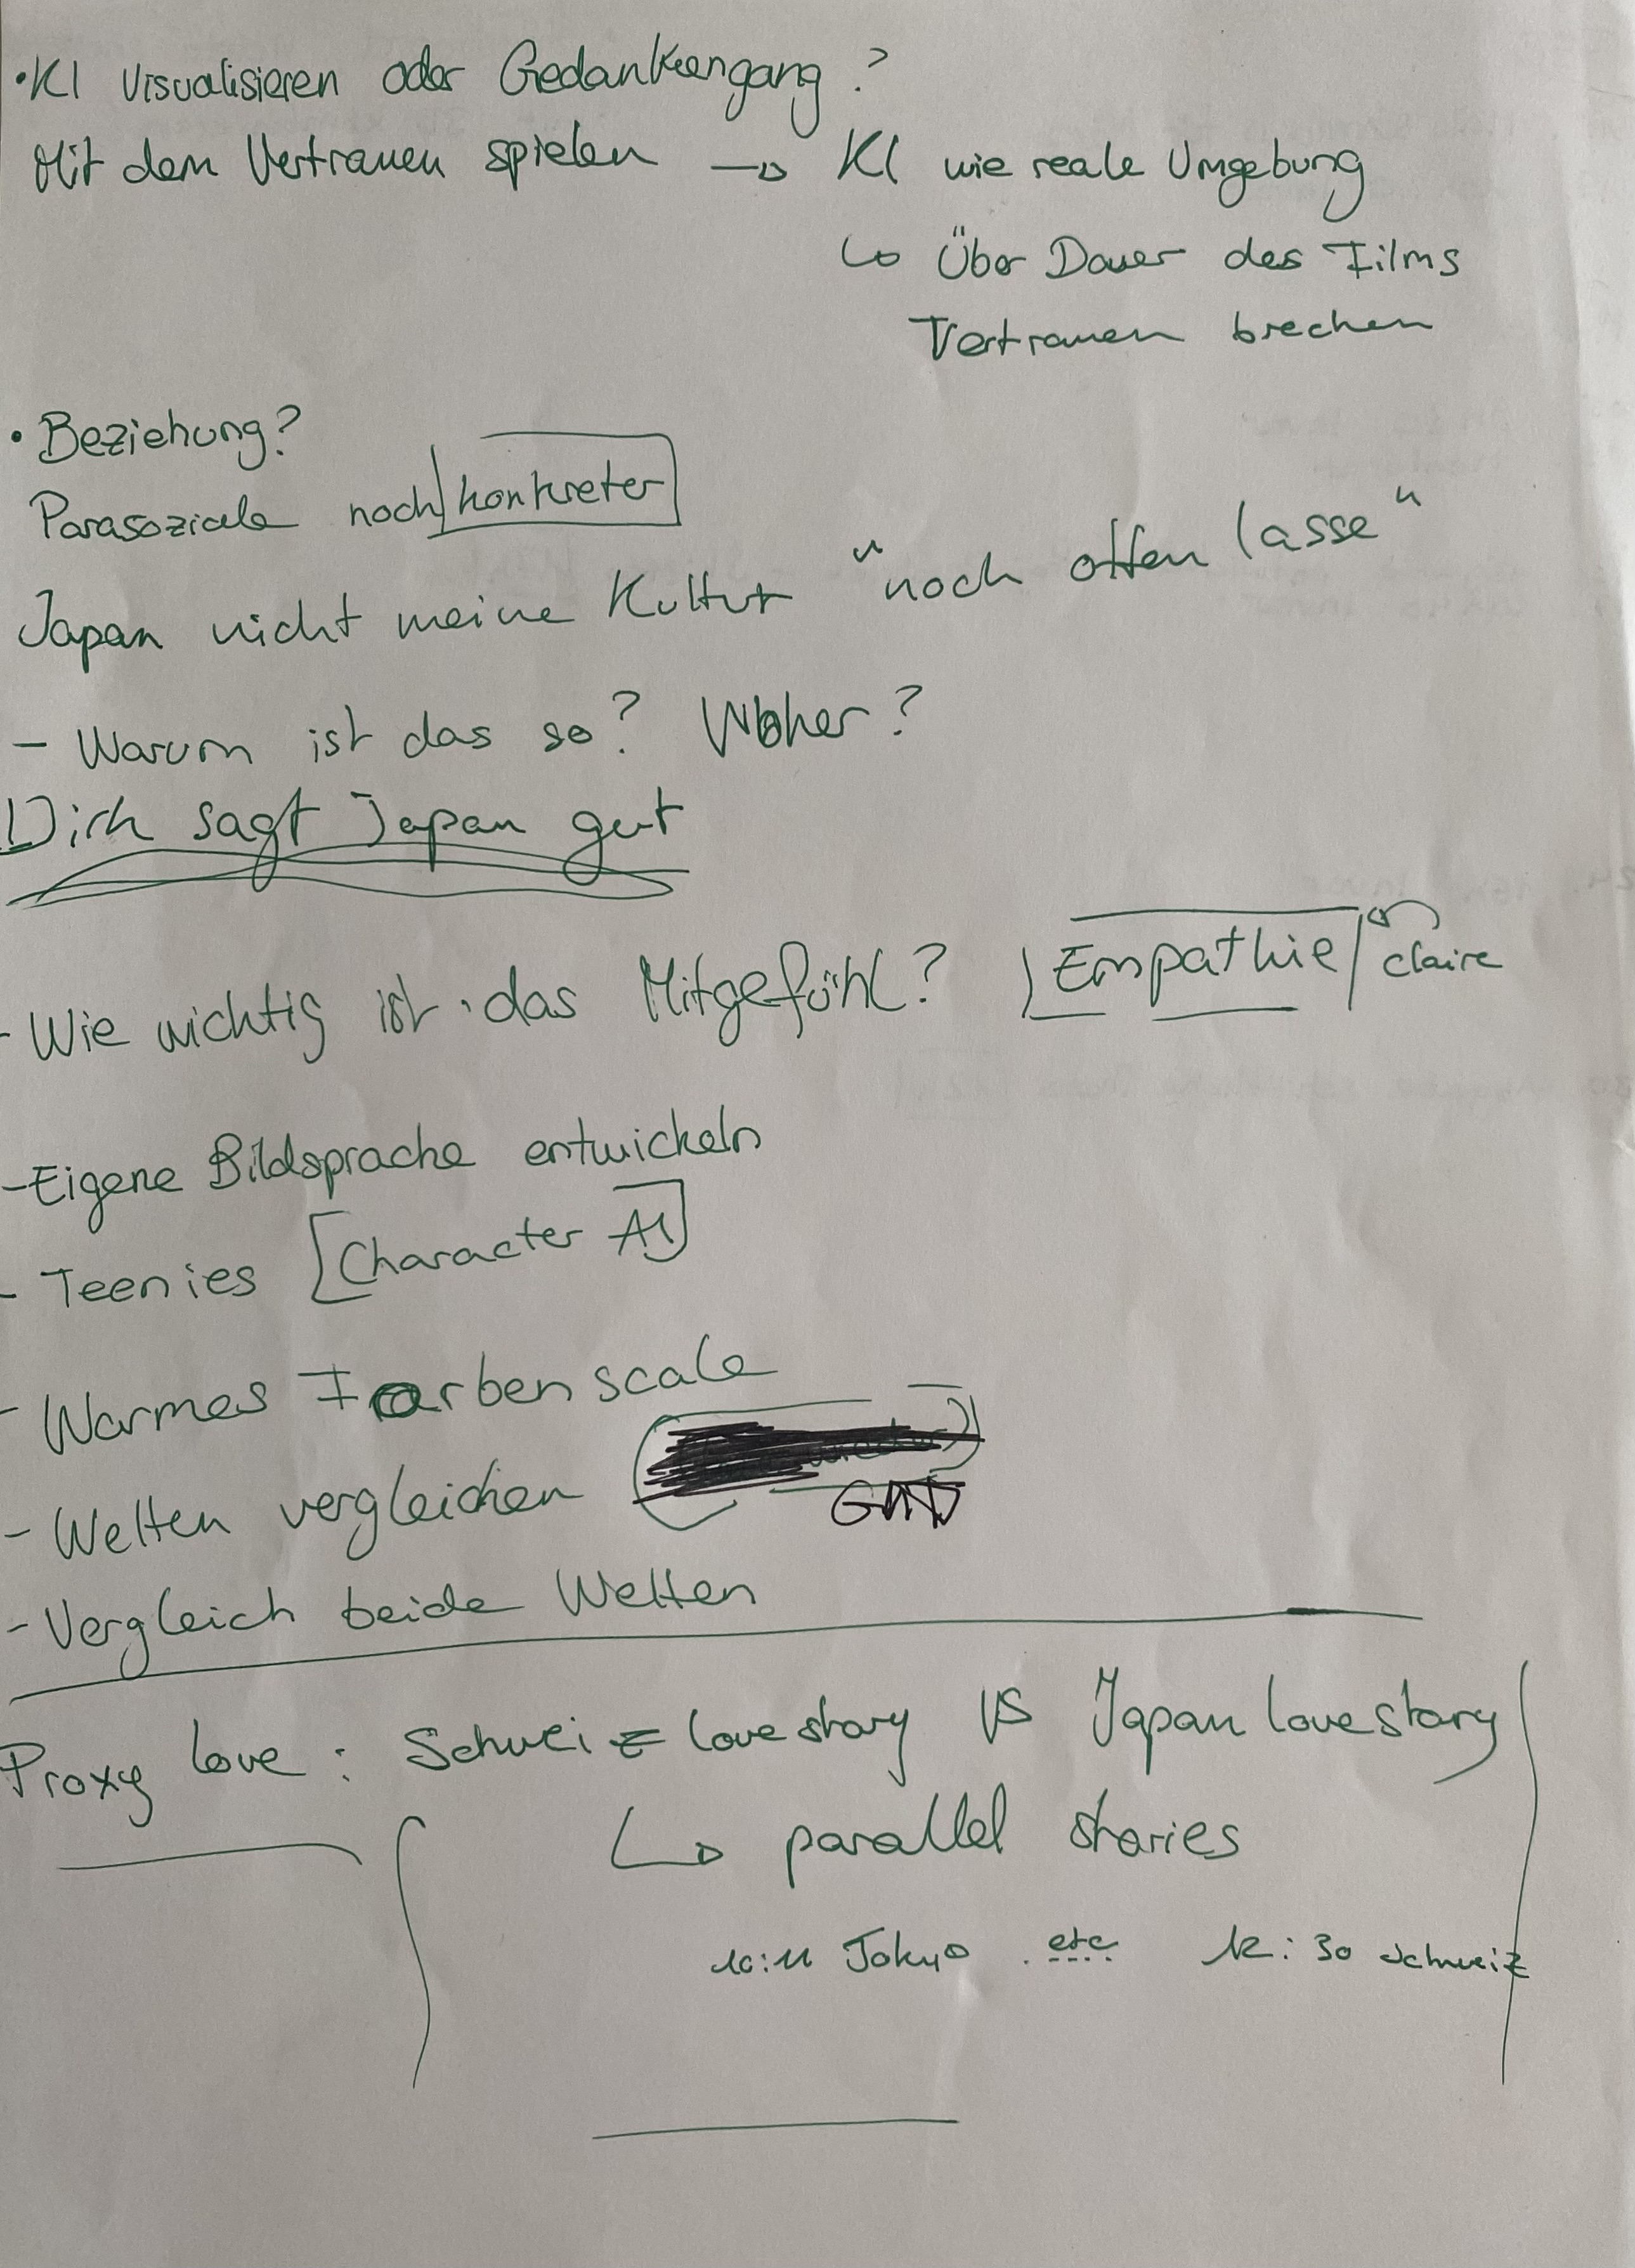 • KI visualisieren oder Gedankengang?
Mit dem Vertrauen spielen → KI wie reale Umgebung
↳ Über Dauer des Films
Vertrauen brechen
• Beziehung?
Parasoziale noch konkreter
Japan nicht meine Kultur "noch offen lasse"
- Warum ist das so? Woher?
Dirk sagt Japan gut
- Wie wichtig ist das Mitgefühl? Empathie claire
- Eigene Bildsprache entwickeln
- Teenies [Character AI]
- Warmes Farbenscale
- Welten vergleichen
- Vergleich beide Welten
Proxy love: Schweiz lovestory VS Japan lovestory
↳ parallel stories
10:11 Tokyo etc 12:30 Schweiz